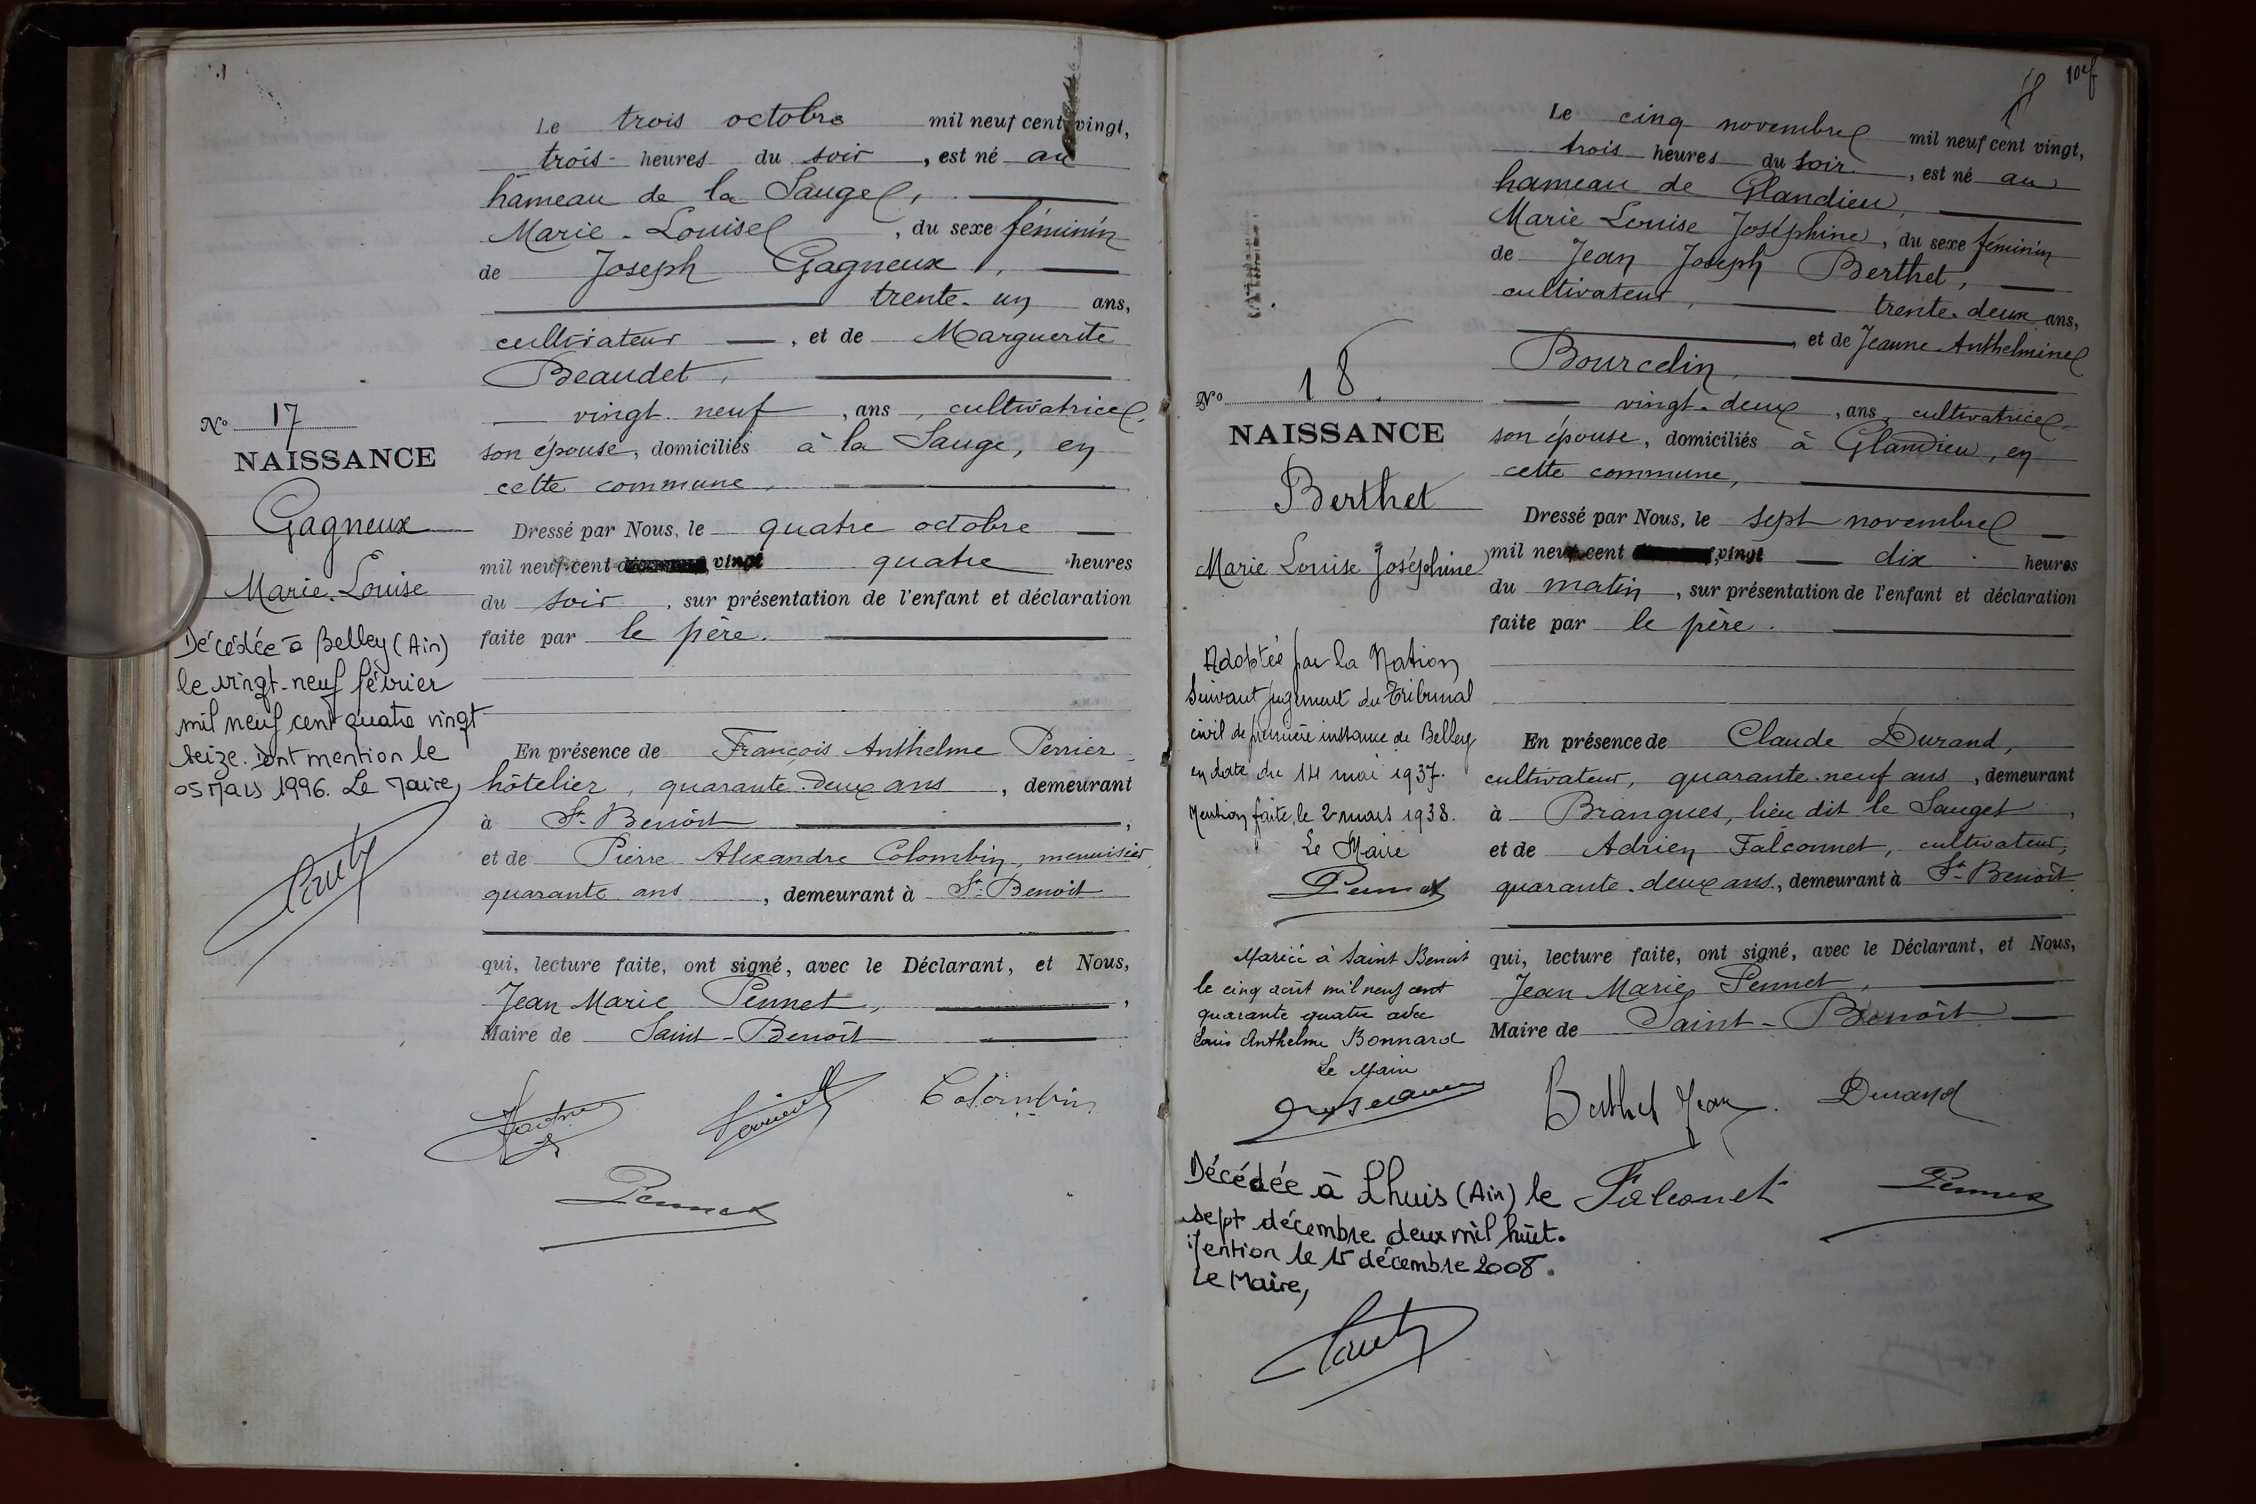 Le trois octobre mil neuf cent vingt,
trois heures du soir, est né au
hameau de la Sauge,
Marie-Louise, du sexe féminin
de Joseph Gagneux,
trente-un ans,
cultivateur, et de Marguerite
Beaudet,
vingt-neuf, ans, cultivatrice,
son épouse, domiciliés à la Sauge, en
cette commune,
Dressé par Nous, le quatre octobre
mil neuf cent vingt quatre heures
du soir, sur présentation de l'enfant et déclaration
faite par le père.
En présence de François Anthelme Perrier
hôtelier, quarante-deux ans, demeurant
à St-Benoît,
et de Pierre Alexandre Colombin, menuisier
quarante ans, demeurant à St-Benoit
qui, lecture faite, ont signé, avec le Déclarant, et Nous,
Jean Marie Pennet,
Maire de Saint-Benoît
Colombin
Pennet
No 17
NAISSANCE
Gagneux
Marie-Louise
Décédée à Belley (Ain)
le vingt-neuf février
mil neuf cent quatre vingt
seize. Dont mention le
05 Mars 1996. Le Maire,
Le cinq novembre mil neuf cent vingt,
trois heures du soir, est né au
hameau de Glandieu,
Marie Louise Joséphine, du sexe féminin
de Jean Joseph Berthet,
cultivateur, trente-deux ans,
et de Jeanne Anthelmine
Bourcelin,
vingt-deux, ans, cultivatrice
son épouse, domiciliés à Glandieu, en
cette commune,
Dressé par Nous, le sept novembre
mil neuf cent vingt dix heures
du matin, sur présentation de l'enfant et déclaration
faite par le père.
En présence de Claude Durand,
cultivateur, quarante-neuf ans, demeurant
à Brangues, lieu dit le Sauget,
et de Adrien Falconnet, cultivateur,
quarante-deux ans, demeurant à St-Benoît
qui, lecture faite, ont signé, avec le Déclarant, et Nous,
Jean Marie Pennet,
Maire de Saint-Benoît
Berthet Jean Durand
Falconet Pennet
No 18.
NAISSANCE
Berthet
Marie Louise Joséphine
Adoptée par la Nation
suivant jugement du Tribunal
civil de première instance de Belley
en date du 14 mai 1937.
Mention faite, le 2 mars 1938.
Le Maire
Pennet
Mariée à Saint Benoit
le cinq août mil neuf cent
quarante quatre avec
Louis Anthelme Bonnard
Le Maire
Décédée à Lhuis (Ain) le
sept décembre deux mil huit.
Mention le 15 décembre 2008.
Le Maire,